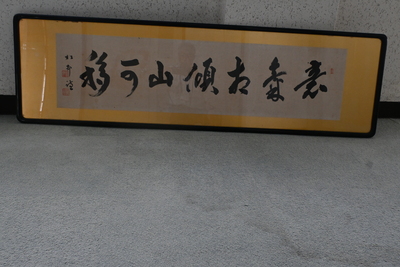 意氣相傾山可移